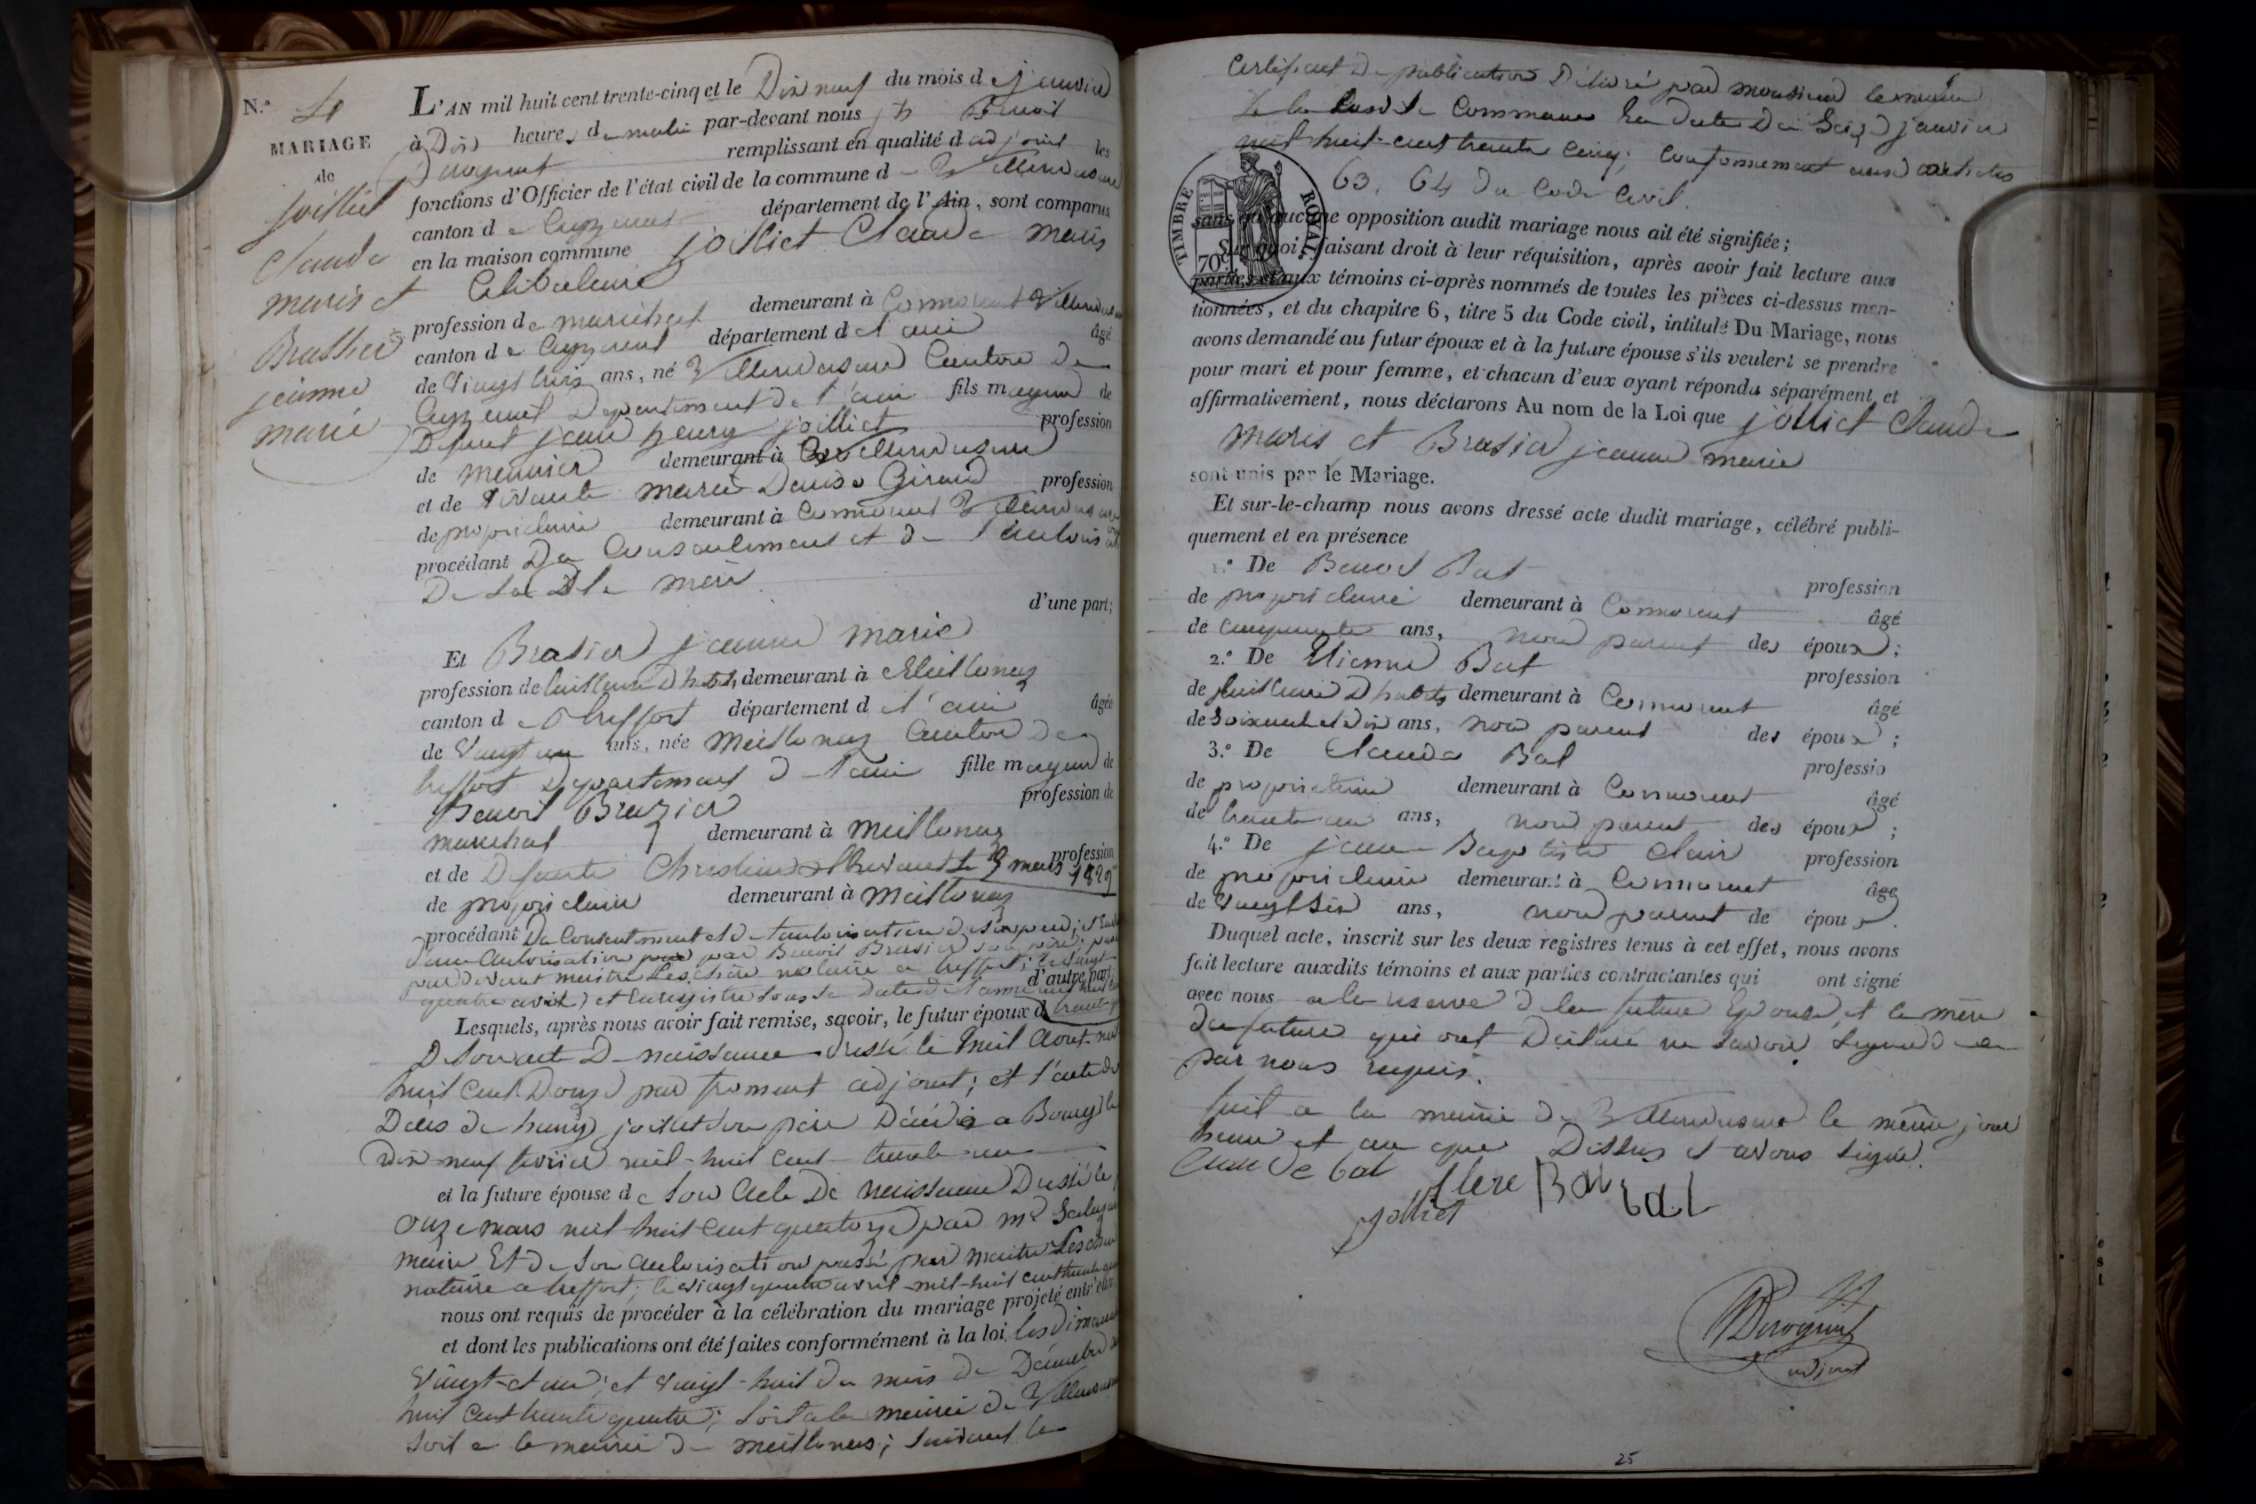 N.º 4
MARIAGE
de
joilliet
Claude
marie et
Brassier
jeanne
marie
L'AN mil huit cent trente-cinq et le Dix neuf du mois de janvier
à Dix heures de matin par-devant nous Benoit
remplissant en qualité d adjoint les
fonctions d'Officier de l'état civil de la commune d
canton d e département de l'Ain, sont comparus
en la maison commune joilliet Claude marie
Celibataire
profession de marechal demeurant à
canton d e département d l'ain âgé
de Vingt trois ans, né Canton de
Departement de l'ain fils mageur de
Defunt jean henry joilliet profession
de meunier demeurant à
et de Vivante marie Denise Giraud profession
de proprietaire demeurant à
procédant Du Consentement et de l'autoris
De Sa Dte mère
d'une part;
Et Brasier jeanne marie
profession de tailleuse D'habits, demeurant à Meillonaz
canton d e treffort département d l'ain âgée
de Vingt un ans, née Meillonaz Canton De
treffort Departement d l'ain fille mageure de
Benoit Brazier profession de
marechal demeurant à Meillonaz
et de Defunte Christine le 3 mars 1829 profession
de proprietaire demeurant à Meillonaz
procédant Du Consentement et de l'autorisation de son pere;
autorisation par Benoit Brasier son père;
par devant maitre notaire a treffort;
d'autre part;
quatre avril et Enregistré
Lesquels, après nous avoir fait remise, savoir, le futur époux d
De Son acte De naissance dressé le huit Aout mil
huit Cent Douze par froment adjoint; et l'acte de
Décès de henry joilliet Son père Décédé a Bourg le
Dix-neuf fevrier mil-huit cent trente un
et la future épouse de Son Acte De naissance Dressé le
onze mars mil huit Cent quatorze par mr
maire Et De Son autorisation passé par maitre
notaire a treffort; le vingt quatre avril mil-huit cent trente
nous ont requis de procéder à la célébration du mariage projeté entr'eux
et dont les publications ont été faites conformément à la loi, les Dimanches
Vingt-et un; et vingt-huit du mois de Décembre
huit Cent trente quatre; Soit a la mairie de
Soit a la mairie de Meillonas; Suivant le
Certificat De publication Délivré par monsieur le maire
De la Commune En date Du Seize janvier
mil huit-cent trente cinq; Conformement aux articles
63. 64 Du Code Civil.
TIMBRE ROYAL
70
sans qu'aucune opposition audit mariage nous ait été signifiée;
Sur quoi, faisant droit à leur réquisition, après avoir fait lecture aux
parties et aux témoins ci-après nommés de toutes les pièces ci-dessus men-
tionnées, et du chapitre 6, titre 5 du Code civil, intitulé Du Mariage, nous
avons demandé au futur époux et à la future épouse s'ils veulent se prendre
pour mari et pour femme, et chacun d'eux ayant répondu séparément et
affirmativement, nous déclarons Au nom de la Loi que joilliet Claude
marie et Brasier jeanne marie
sont unis par le Mariage.
Et sur-le-champ nous avons dressé acte dudit mariage, célébré publi-
quement et en présence
1.º De Benoit Bat profession
de propriétaire demeurant à Cormorant âgé
de cinquante ans, non parent des époux;
2.º De Etienne Bat profession
de tailleur D'habits demeurant à Cormorant âgé
de Soixante et dix ans, non parent des époux;
3.º De Claude Bal professio
de propriétaire demeurant à Cormorant âgé
de trente un ans, non parent des époux;
4.º De jean Baptiste Clair profession
de propriétaire demeurant à Cormorant âgé
de Vingt Six ans, non parent de époux.
Duquel acte, inscrit sur les deux registres tenus à cet effet, nous avons
fait lecture auxdits témoins et aux parties contractantes qui ont signé
avec nous a la reserve de la future Epouse, et la mère
du future qui ont Déclaré ne Savoir Signer De ce
par nous requis.
fait a la mairie de le même jour
heure et an que Dessus et avons Signé.
Claude bal Clere Bal bal
jolliet
Duroquat
adjoint
25